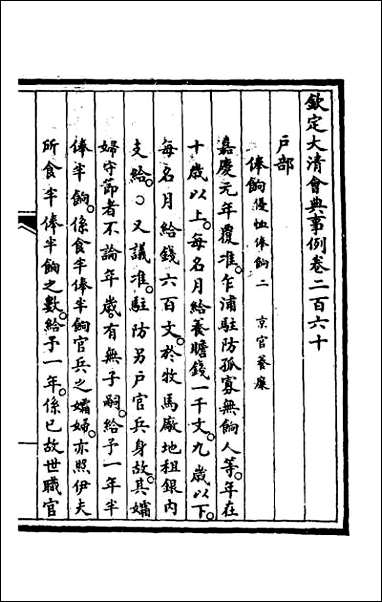 欽定大清會典事例卷二百六十
戶部
俸餉優恤俸餉二 京官養廉
嘉慶元年覆准。乍浦駐防孤寡無餉人等。年在
十歲以上。每名月給養贍錢一千文。九歲以下。
每名月給錢六百文。於牧馬廠地租銀內
支給。○又議准。駐防另戶官兵身故。其孀
婦守節者不論年歲有無子嗣。給予一年半
俸半餉。係食半俸半餉官兵之孀婦。亦照伊夫
所食半俸半餉之數。給予一年。係已故世職官